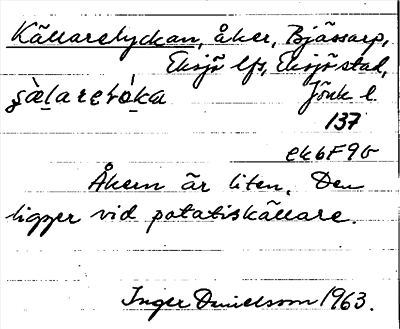 Källarelyckan, åker, Bjässarp,
Eksjö lfs, Eksjö stad,
Jönk l.
137
ek 6 F 9 b
Åkern är liten. Den
ligger vid potatiskällare.
Inger Danielsson 1963.